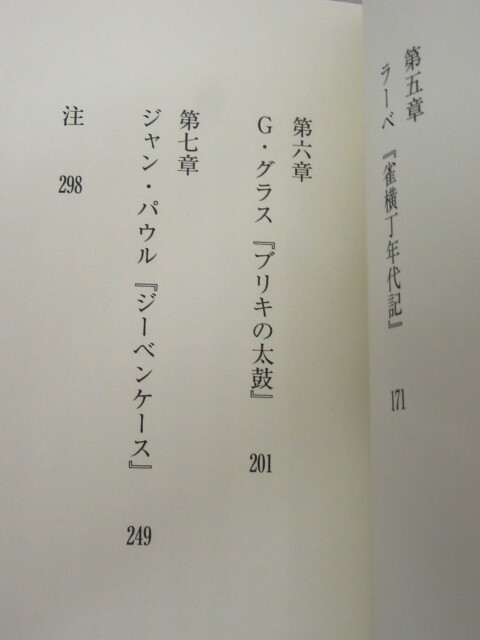 第五章
ラーベ『雀横丁年代記』 171
第六章
G・グラス『ブリキの太鼓』 201
第七章
ジャン・パウル『ジーベンケース』 249
注 298